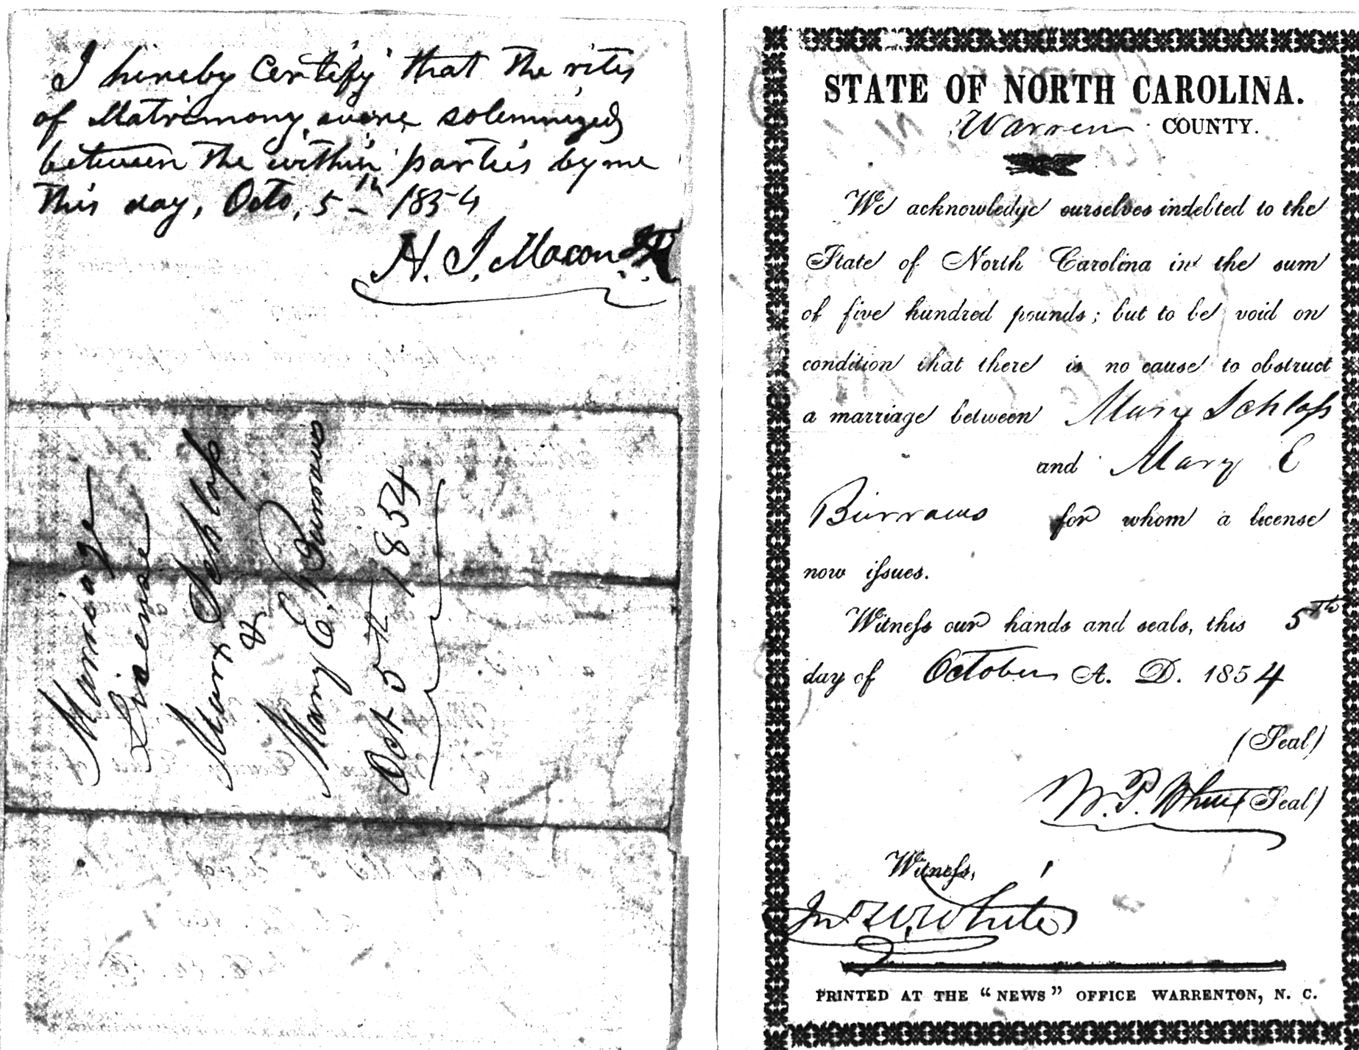 I hereby Certify that the rites
of Matrimony were solemnized
between the within parties by me
this day, Octo, 5th 1854
H. J. Macon
Marriage
License
Marx Schloſs
&
Mary E. Burrows
Oct 5th 1854
STATE OF NORTH CAROLINA.
Warren COUNTY.
We acknowledge ourselves indebted to the
State of North Carolina in the sum
of five hundred pounds; but to be void on
condition that there is no cause to obstruct
a marriage between Marx Schloſs
and Mary E
Burrows for whom a license
now iſsues.
Witneſs our hands and seals, this 5th
day of October A. D. 1854
(Seal)
W. P. White (Seal)
Witneſs,
Jno W. White
PRINTED AT THE "NEWS" OFFICE WARRENTON, N. C.